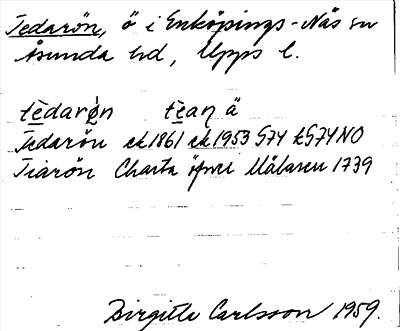 Tedarön, ö i Enköpings-Näs sn
Åsunda hd, Upps l.
tèdarö̀n tèan ä
Tedarön ek 1861 ek 1953 S74 ES74NO
Tiarön Charta öfver Mälaren 1739
Birgitta Carlsson 1959.